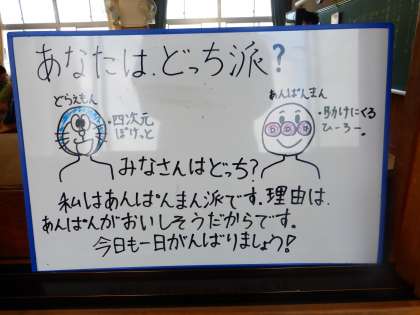 あなたは、どっち派?
どらえもん
・四次元
ぽけっと
あんぱんまん
・助けにくる
ひーろー。
みなさんはどっち?
私はあんぱんまん派です。理由は、
あんぱんがおいしそうだからです。
今日も一日がんばりましょう!